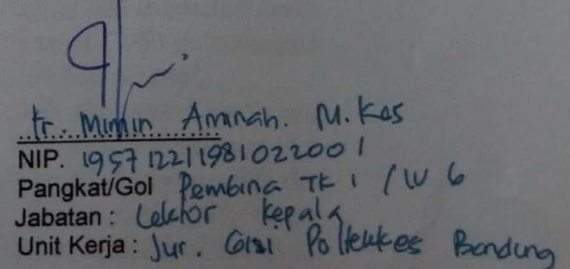 Ir. Mimin Aminah. M.Kes
NIP. 195712211981022001
Pangkat/Gol Pembina TK 1 / IV b
Jabatan : Lektor Kepala
Unit Kerja : Jur. Gizi Poltekkes Bandung